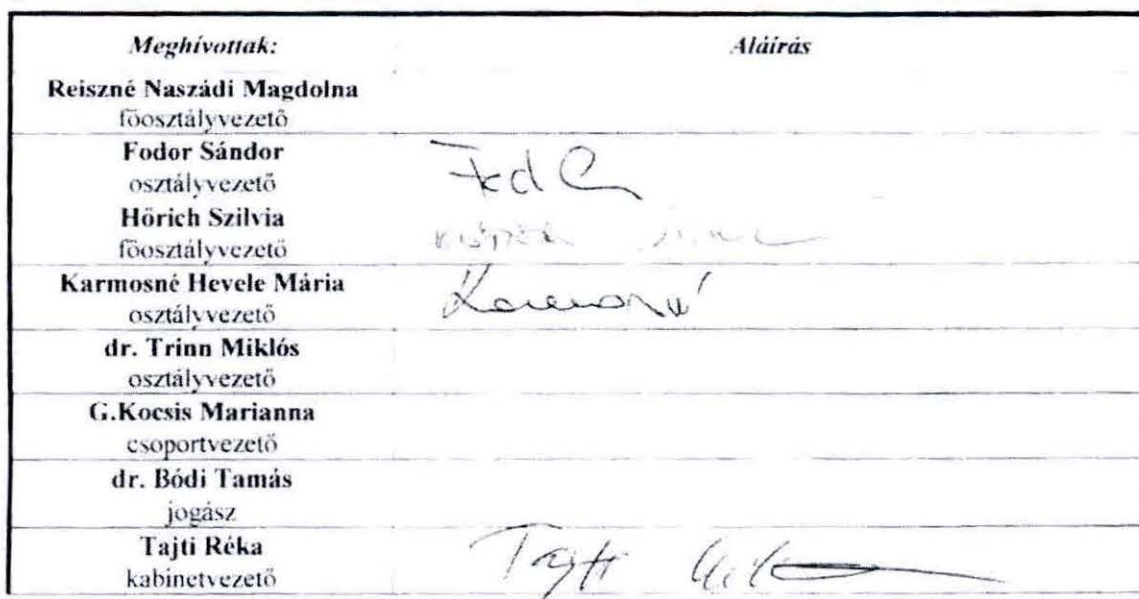 Meghívottak: Aláírás
Reiszné Naszádi Magdolna
főosztályvezető
Fodor Sándor
osztályvezető
Hörich Szilvia
főosztályvezető
Karmosné Hevele Mária
osztályvezető
Karmosné
dr. Trinn Miklós
osztályvezető
G.Kocsis Marianna
csoportvezető
dr. Bódi Tamás
jogász
Tajti Réka
kabinetvezető
Tajti